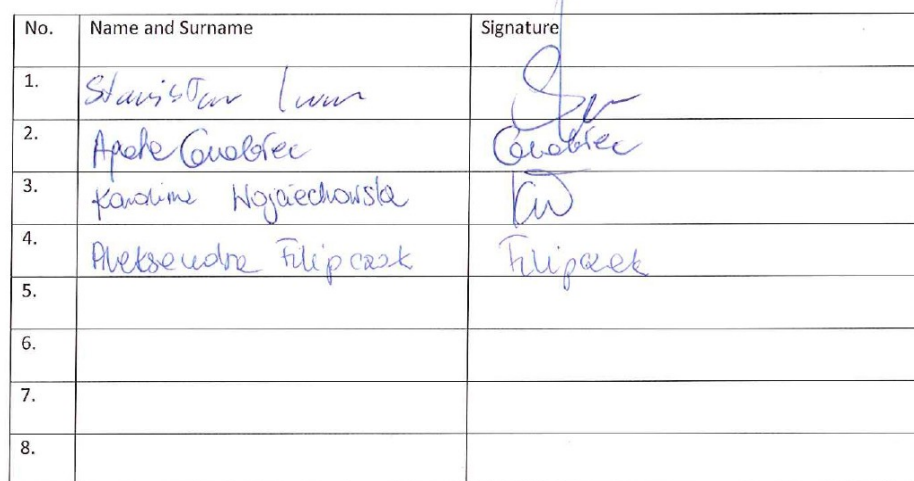 No. Name and Surname Signature
1. Stanisław Iwan
2.
3. Karolina Wojciechowska KW
4. Aleksandra Filipczak Filipczak
5.
6.
7.
8.